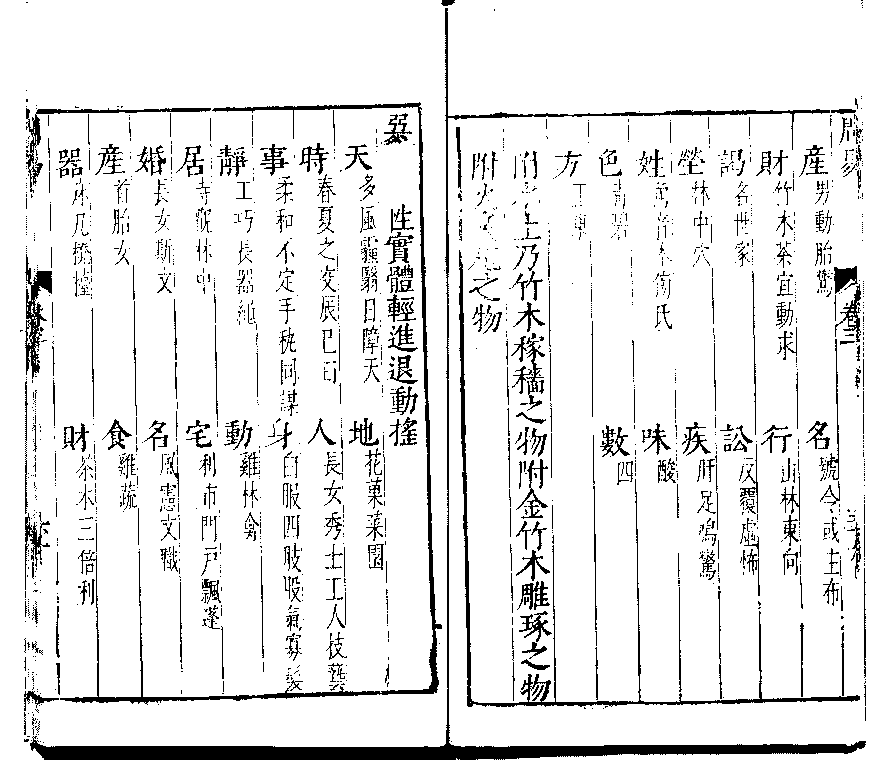 周易 卷三
產 男動胎驚 名 號令或主布
財 竹木茶宜動求 行 山林東向
謁 名世家 訟 反覆虛怖
塋 林中穴 疾 肝足鳴驚
姓 氏 味 酸
色 青碧 數 四
方
乃竹木稼穡之物附金竹木雕琢之物
附火之物
巽 性實體輕進退動搖
天 多風靄翳日障天 地 花菓菜園
時 春夏之交辰巳 人 長女秀士工人技藝
事 柔和不定手 謀 身 白服四肢股氣寡髮
靜 工巧長器繩 動 雞林禽
居 寺觀林中 宅 利市門戶飄蓬
婚 長女斯文 名 風憲文職
產 首胎女 食 雞蔬
器 床几 財 茶木三倍利